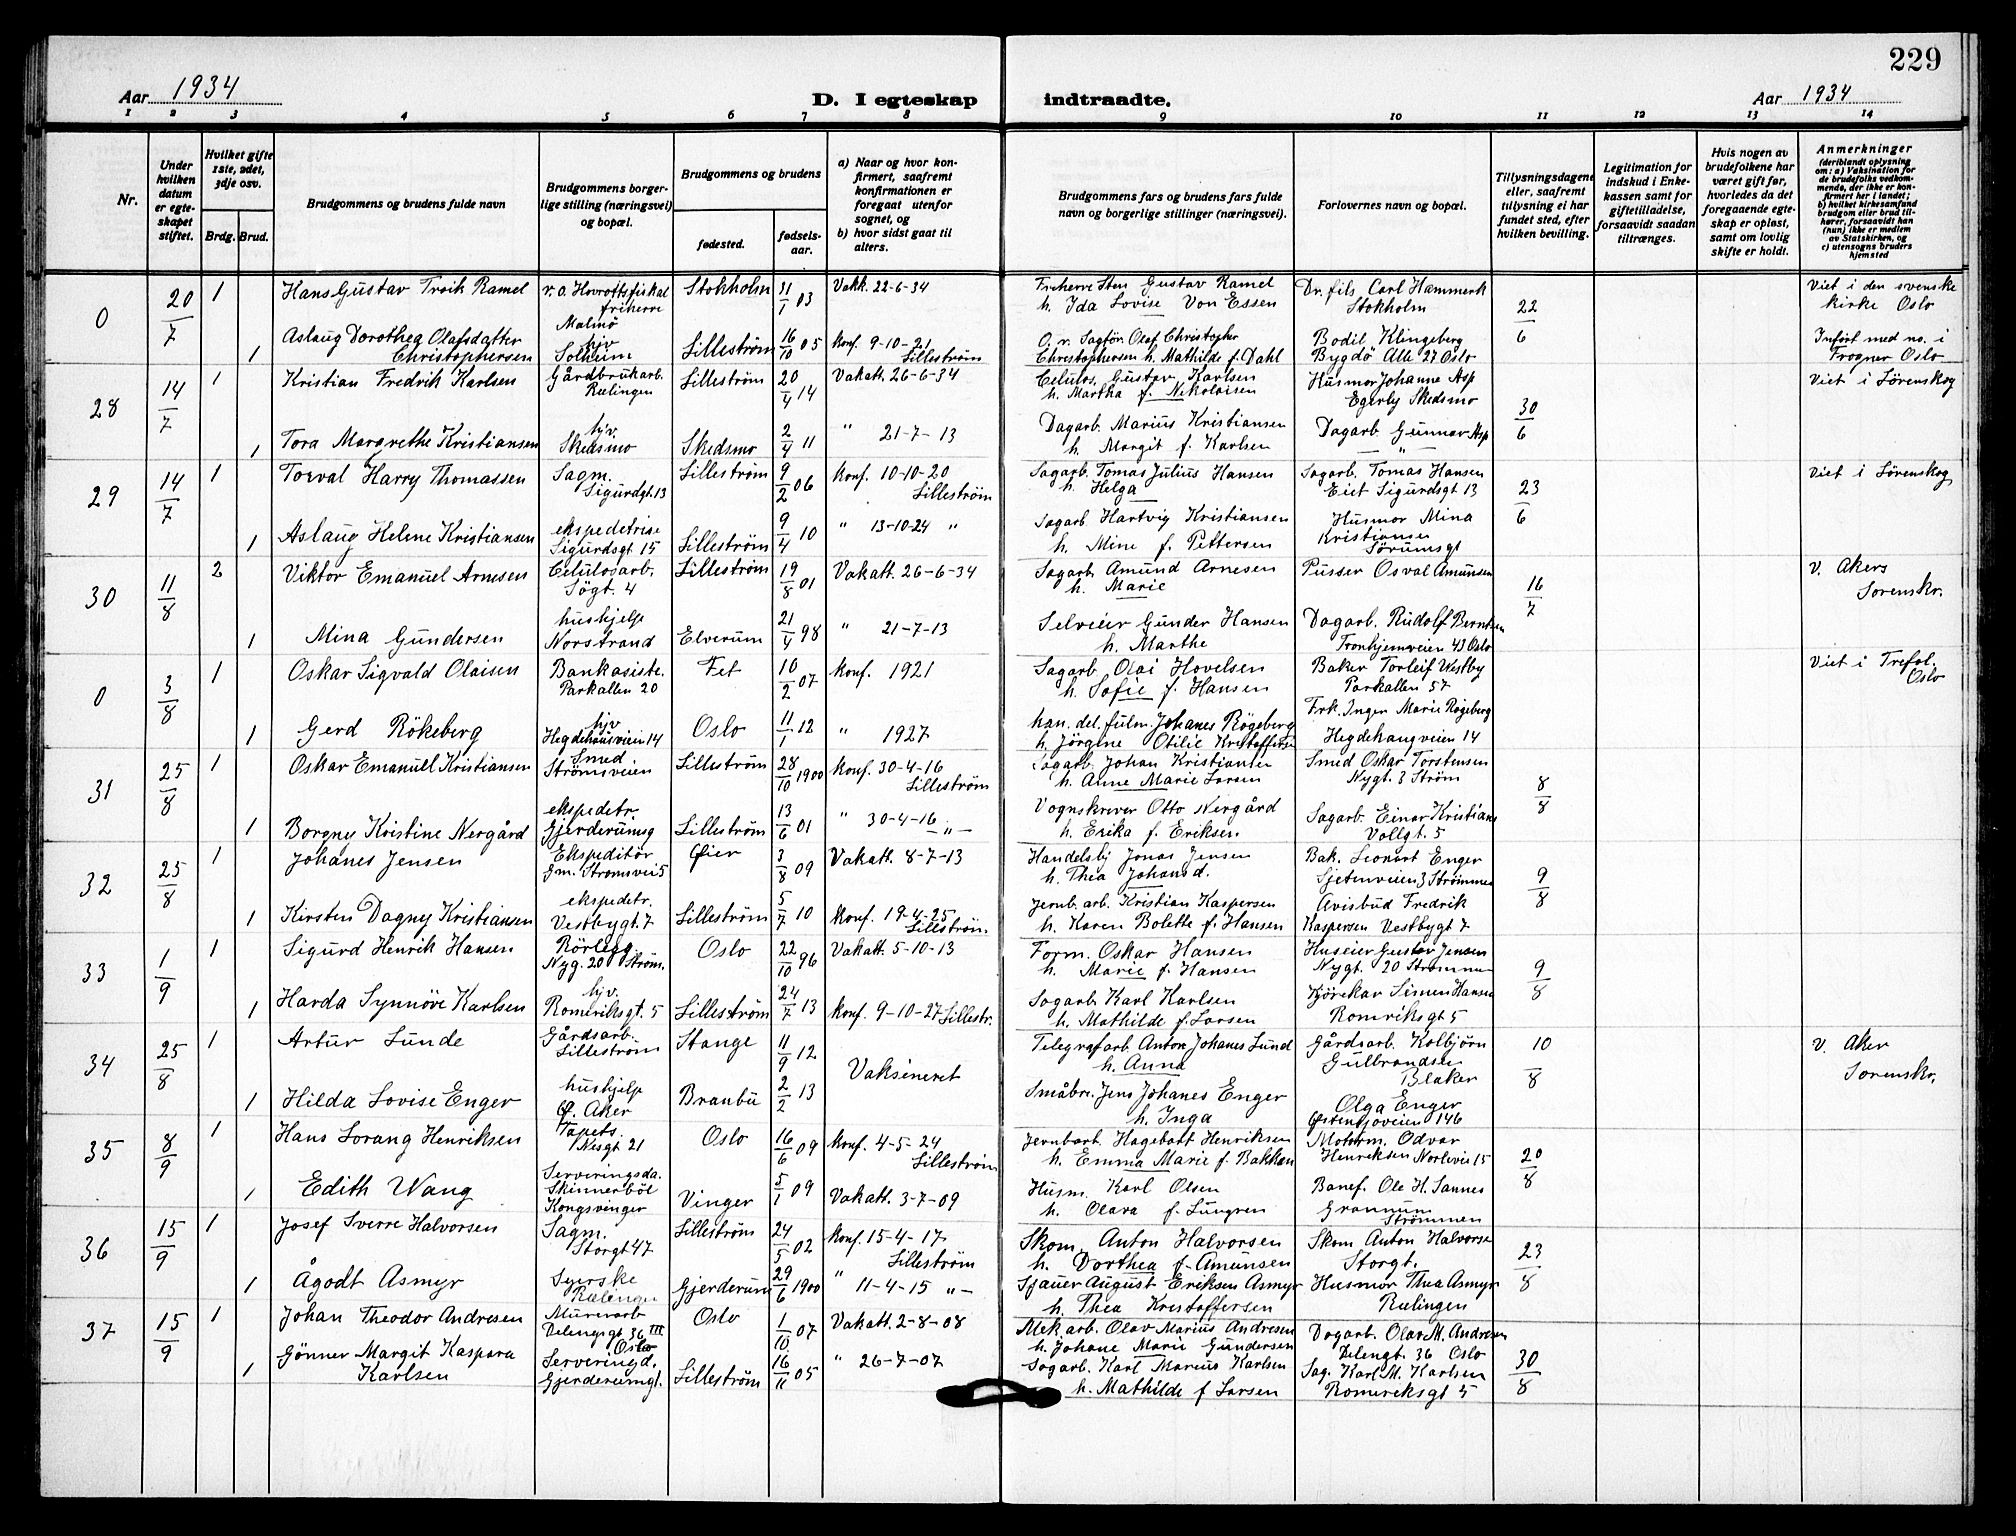 229
Aar 1934
D. I egteskap indtraadte.
Aar 1934
1 2 3 4 5 6 7 8 9 10 11 12 13 14
Nr.
Under hvilken datum er egteskapet stiftet.
Hvilket gifte 1ste, 2det, 3dje osv.
Brdg. Brud.
Brudgommens og brudens fulde navn
Brudgommens borgerlige stilling (næringsvei) og bopæl.
Brudgommens og brudens
fødested.
fødselsaar.
a) Naar og hvor konfirmert, saafremt konfirmationen er foregaat utenfor sognet, og
b) hvor sidst gaat til alters.
Brudgommens fars og brudens fars fulde navn og borgerlige stillinger (næringsvei).
Forlovernes navn og bopæl.
Tillysningsdagene eller, saafremt tillysning ei har fundet sted, efter hvilken bevilling.
Legitimation for indskud i Enkekassen samt for giftetilladelse, forsaavidt saadan tiltrænges.
Hvis nogen av brudefolkene har været gift før, hvorledes da det foregaaende egteskap er opløst, samt om lovlig skifte er holdt.
Anmerkninger
(deriblandt oplysning om: a) Vaksination for de brudefolks vedkommende, der ikke er konfirmert her i landet; b) hvilket kirkesamfund brudgom eller brud tilhører, forsaavidt han (hun) ikke er medlem av Statskirken, og c) utensogns bruders hjemsted
0 20/7 1 Hans Gustav Troik Ramel v. o. Hovrottsfiskal friherre Malmö Stokholm 31/1 03 Vakk. 22-6-34 Friherre Sten Gustav Ramel h. Ida Lovise Von Essen Dr. fils Carl Hammerk Stokholm 22/6 Viet i den svenske kirke Oslo
1 Aslaug Dorothea Olafsdatter Christophersen hjv Solheim Lilleström 16/10 05 Konf. 9-10-21 Lilleström O. r. Sagför. Olaf Christopher Christophersen h. Mathilde f. Dahl Bodil Klingeberg Bygdö Alle 27 Oslo Infört med no. i Frogner Oslo
28 14/7 1 Kristian Fredrik Karlsen Gårdbrukarb. Rælingen Lilleström 20/4 14 Vakatt. 26-6-34 Celulos. Gustav Karlsen h. Martha f. Nikolaisen Husmor Johanne Asp Egerby Skedsmo 30/6 Viet i Lörenskog
1 Tora Margrethe Kristiansen hjv. Skedsmo Skedsmo 2/4 11 " 21-7-13 Dagarb. Marius Kristiansen h. Margit f. Karlsen Dagarb. Gunnar Asp — " —
29 14/7 1 Torval Harry Thomassen Sagm. Sigurdgt. 13 Lilleström 9/2 06 Konf. 10-10-20 Lilleström Sagarb. Tomas Julius Hansen h. Helga Sagarb. Tomas Hansen Eiet Sigurdsgt 13 23/6 Viet i Lörenskog
1 Aslaug Helene Kristiansen ekspedetrise Sigurdsgt 15 Lilleström 9/4 10 " 13-10-24 " Sagarb. Hartvig Kristiansen h. Mine f. Pettersen Husmor Mina Kristiansen Sörumsgt
30 11/8 2 Viktor Emanuel Arnesen Celulosarb. Sögt. 4 Lilleström 19/8 01 Vakatt. 26-6-34 Sagarb. Amund Arnesen h. Marie Pusser Osval Amunsen 16/7 v. Akers Sorenskr.
1 Mina Gundersen hushjelp Norstrand Elverum 21/4 98 " 21-7-13 Selveier Gunder Hansen h. Marthe Dagarb. Rudolf Berntsen Tronhjemveien 43 Oslo
0 3/8 1 Oskar Sigvald Olaisen Bankasiste. Parkallen 20 Fet 10/2 07 Konf. 1921 Sagarb. Olai Hovelsen h. Sofie f. Hansen Baker Torleif Westby Parkallen 57 Viet i Trefol. Oslo
1 Gerd Rökeberg hjv Hegdehausveien 14 Oslo 11/1 12 " 1927 han. del. fulm. Johanes Rögeberg h. Jörgine Otilie Kristoffersen Frk. Inger Marie Rögeberg Hegdehaugveien 14
31 25/8 1 Oskar Emanuel Kristiansen Smed Strömsveien Lilleström 28/10 1900 Konf. 30-4-16 Lilleström Sagarb. Johan Kristiansen h. Anne Marie Larsen Smed Oskar Torstensen Nygt. 3 Ström 8/8
1 Borgny Kristine Nergård ekspedetr. Gjerderumsg Lilleström 13/6 01 " 30-4-16 — " — Vognskriver Otto Nergård h. Erika f. Eriksen Sagarb. Einar Kristians Vollgt. 5
32 25/8 1 Johanes Jensen Ekspeditör Gm. Strømsvei 5 Øier 3/8 09 Vakatt. 8-7-13 Handelsbj Jonas Jensen h. Thea Johansd. Bak. Leonart Enger Sjetenveien 3 Strömmen 9/8
1 Kirsten Dagny Kristiansen ekspedetr. Vestbygt. 7 Lilleström 5/7 10 Konf. 19-4-25 Lilleström. Jernb. arb. Kristian Kaspersen h. Karen Bolette f. Hansen Avisbud Fredrik Kaspersen Vestbygt 7
33 1/9 1 Sigurd Henrik Hansen Rörlegg. Nyg. 20 Ström. Oslo 22/10 96 Vakatt. 5-10-13 Form. Oskar Hansen h. Marie f. Hansen Huseier Gustav Jensen Nygt. 20 Strømmen 9/8
1 Harda Synnöve Karlsen hjv. Romeriksgt. 5 Lilleström 24/7 13 Konf. 9-10-27 Lillestr. Sagarb. Karl Karlsen h. Mathilde f. Larsen Kjörekar Simen Hansen Romriksgt 5
34 25/8 1 Artur Lunde Gårdsarb. Lilleström Stange 11/9 12 Vaksineret Telegrafarb. Anton Johanes Lund h. Anna Gårdsarb. Kolbjörn Gulbrandsen Blaker 10/8 v. Aker Sorenskr.
1 Hilda Lovise Enger hushjelp Ø. Aker Branbu 2/2 13 Småbr. Jens Johanes Enger h. Inga Olga Enger Østensjöveien 146
35 8/9 1 Hans Lorang Henriksen Tapets. Nesgt 21 Oslo 16/6 09 Konf. 4-5-24 Lilleström Jernbarb. Hagebatt Henriksen h. Emma Marie f. Bakken Motorm. Odvar Henriksen Norlivei 15 20/8
1 Edith Wang Serveringsda. Skinnerböl Kongsvinger Vinger 5/1 09 Vakatt. 3-7-09 Husm. Karl Olsen h. Olava f. Lungren Banef. Ole H. Sannes Granum Strömmen
36 15/9 1 Josef Sverre Halvorsen Sagm. Storgt 47 Lilleström 24/5 02 Konf. 15-4-17 Lilleström Skom. Anton Halvorsen h. Dorthea f. Amunsen Skom Anton Halvorse Storgt. 23/8
1 Ågodt Asmyr Syerske Rælingen Gjerderum 29/6 1900 " 11-4-15 " — Sjauer August Eriksen Asmyr h. Thea Kristoffersen Husmor Thea Asmyr Rælingen
37 15/9 1 Johan Theodor Andresen Murerarb Delengsgt 36 III Oslo Oslo 1/10 07 Vakatt. 2-8-08 Mek. arb. Olav Marius Andresen h. Johane Marie Gundersen Dagarb. Olav M. Andresen Delengt. 36 Oslo 30/8
1 Gönner Margit Kaspara Karlsen Serveringd. Gjerderumgt. Lilleström 16/11 05 " 26-7-07 Sagarb. Karl Marius Karlsen h. Mathilde f Larsen Sag. Karl M. Karlsen Romeriksgt 5